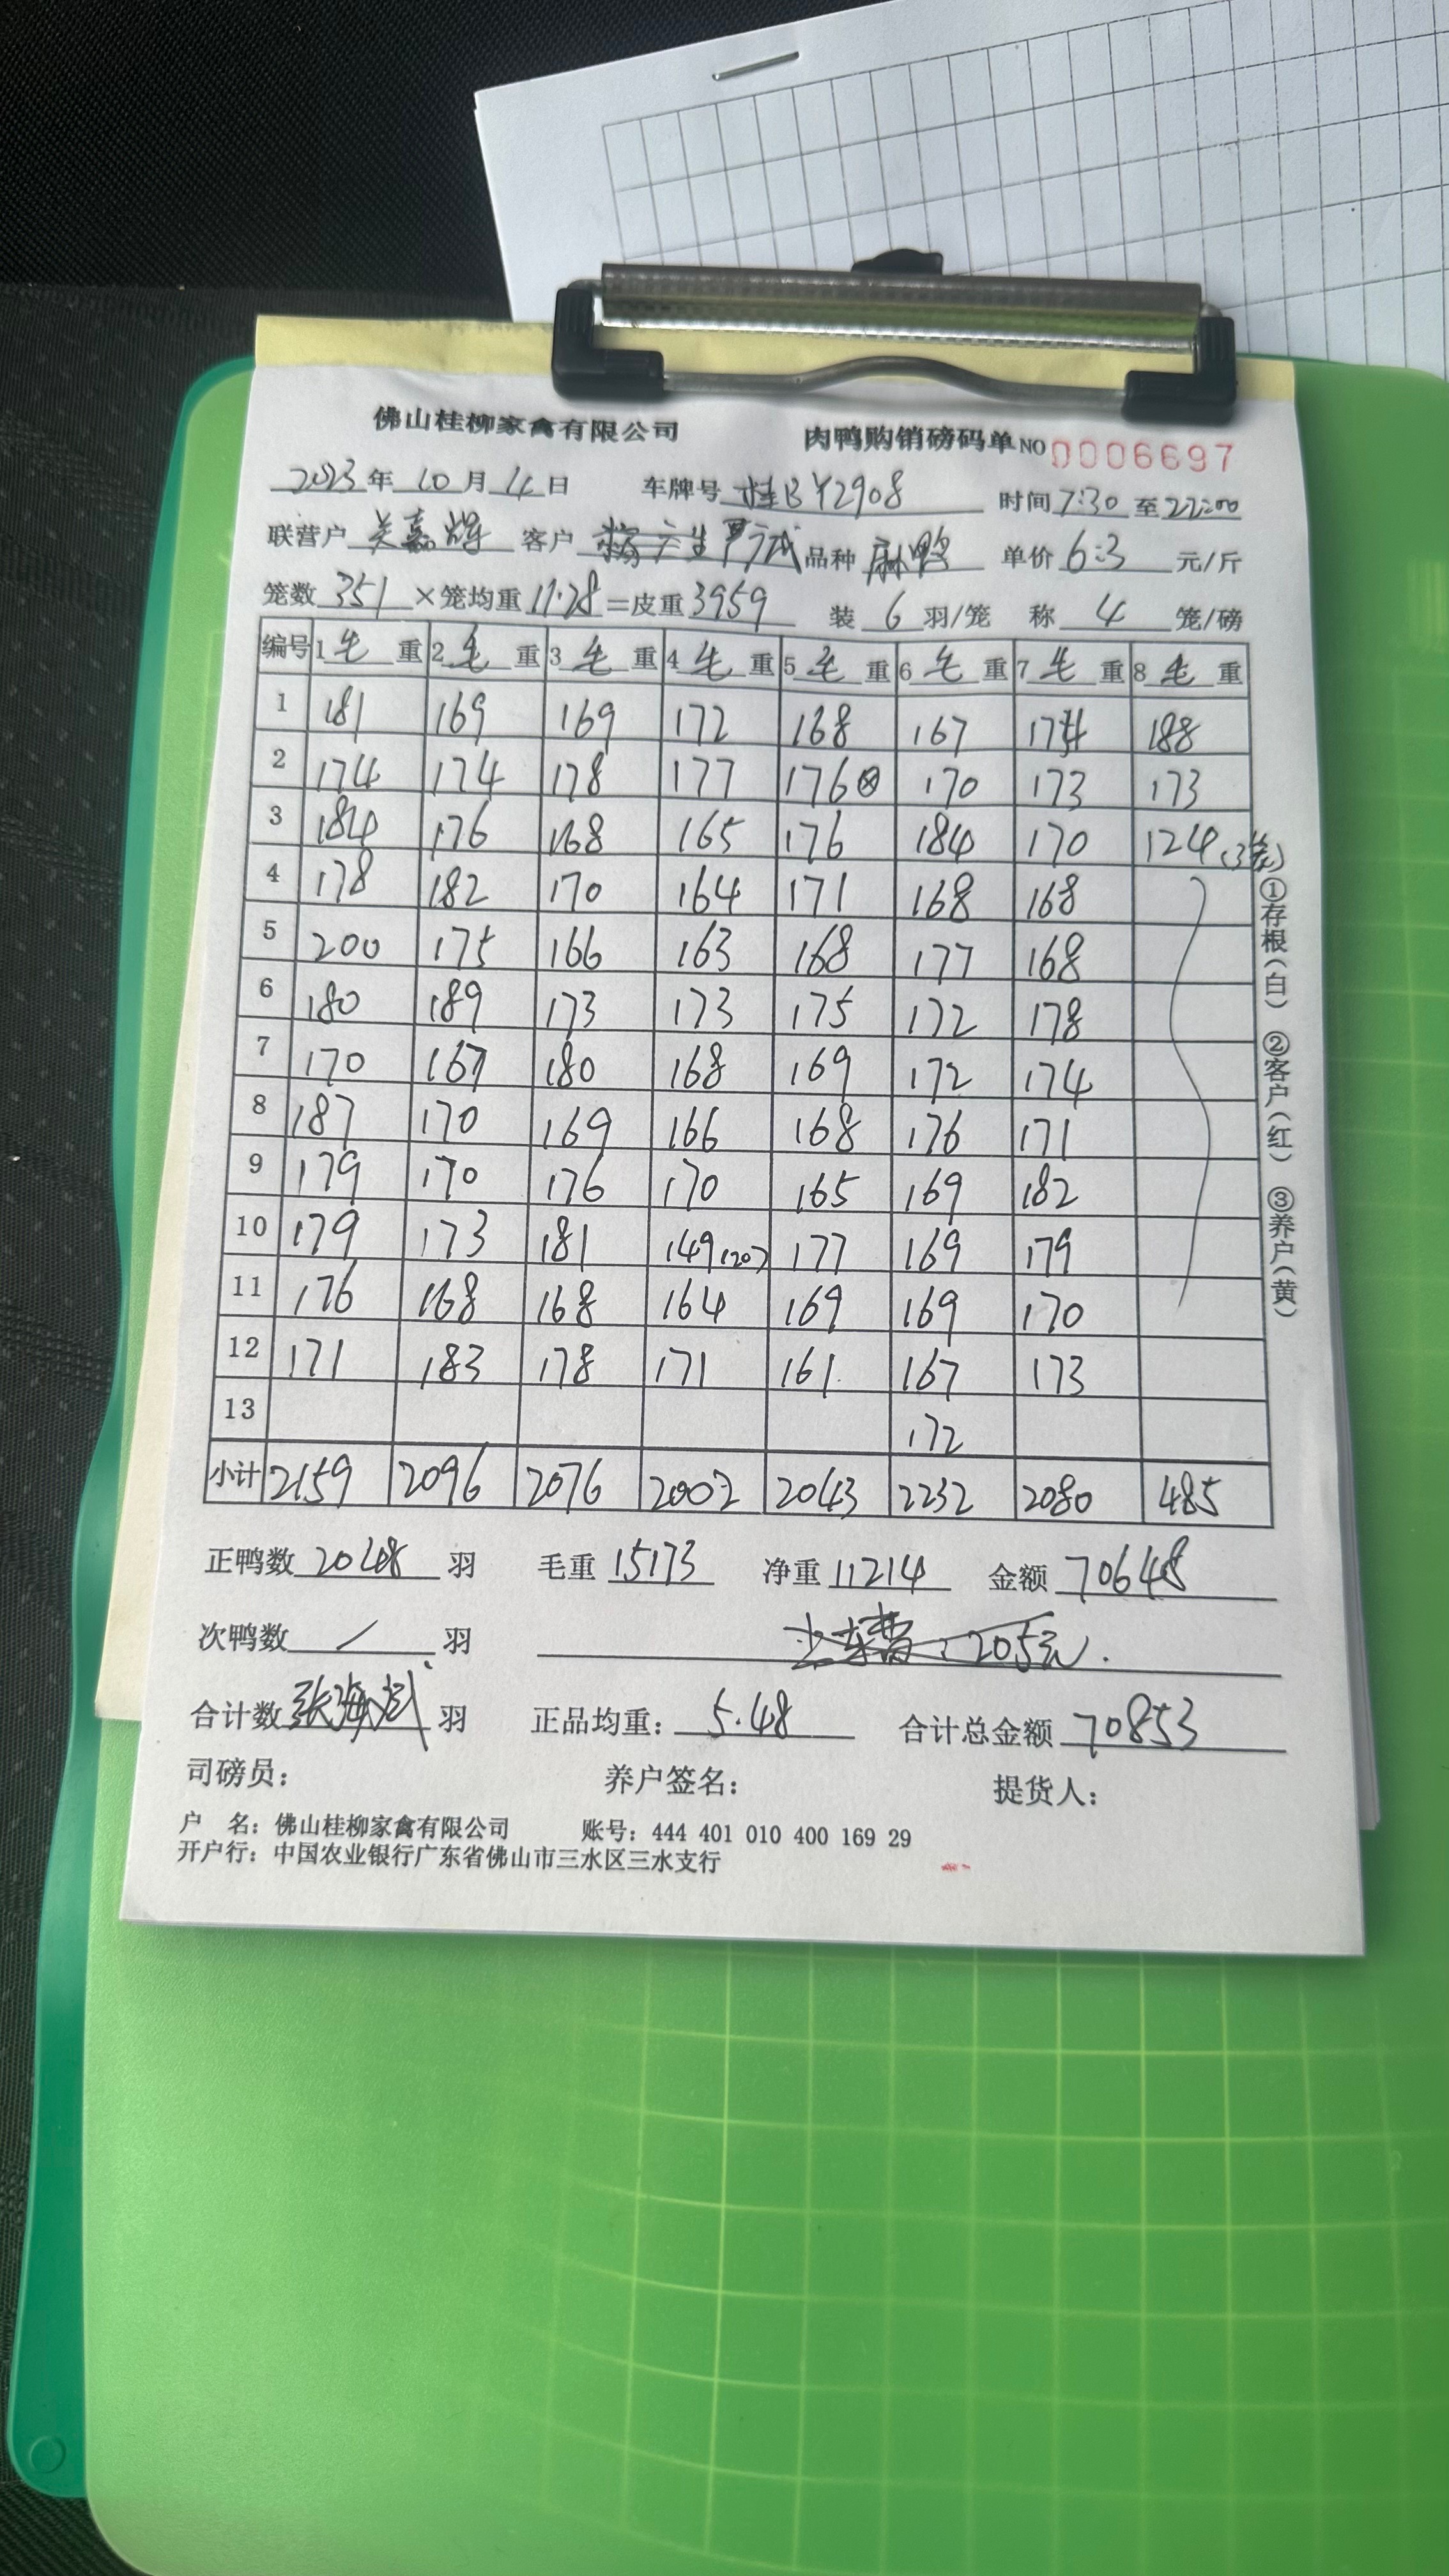 佛山桂柳家禽有限公司 肉鸭购销磅码单 NO 0006697
2023年10月4日 车牌号 桂BY2908 时间 7:30 至 22:00
联营户 关嘉辉 客户 品种 麻鸭 单价 6.3 元/斤
笼数 351 ×笼均重 11.28 =皮重 3959 装 6 羽/笼 称 4 笼/磅
编号 1 毛 重 2 毛 重 3 毛 重 4 毛 重 5 毛 重 6 毛 重 7 毛 重 8 毛 重
1 181 169 169 172 168 167 174 188
2 174 174 178 177 176 170 173 173
3 184 176 168 165 176 184 170 124(3笼)
4 178 182 170 164 171 168 168
5 200 175 166 163 168 177 168
6 180 189 173 173 175 172 178
7 170 167 180 168 169 172 174
8 187 170 169 166 168 176 171
9 179 170 176 170 165 169 182
10 179 173 181 149(20) 177 169 179
11 176 168 168 164 169 169 170
12 171 183 178 171 161 167 173
13 172
小计 2159 2096 2076 2002 2043 2232 2080 485
正鸭数 2048 羽 毛重 15173 净重 11214 金额 70648
次鸭数 / 羽 上车费:205元.
合计数 张海斌 羽 正品均重: 5.48 合计总金额 70853
司磅员: 养户签名: 提货人:
户 名:佛山桂柳家禽有限公司 账号:444 401 010 400 169 29
开户行:中国农业银行广东省佛山市三水区三水支行
①存根(白) ②客户(红) ③养户(黄)